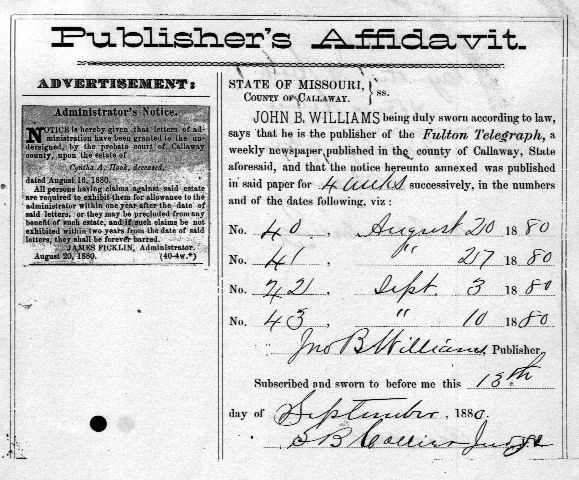 Publisher's Affidavit.
ADVERTISEMENT:
Administrator's Notice.
NOTICE is hereby given that letters of ad-
ministration have been granted to the un-
dersigned, by the probate court of Callaway
county, upon the estate of
Cyntha A. Hook, deceased,
dated August 16, 1880.
All persons having claims against said estate
are required to exhibit them for allowance to the
administrator within one year after the date of
said letters, or they may be precluded from any
benefit of such estate, and if such claims be not
exhibited within two years from the date of said
letters, they shall be forever barred.
JAMES FICKLIN, Administrator.
August 20, 1880. (40-4w.*)
STATE OF MISSOURI,
COUNTY OF CALLAWAY. } ss.
JOHN B. WILLIAMS being duly sworn according to law,
says that he is the publisher of the Fulton Telegraph, a
weekly newspaper published in the county of Callaway, State
aforesaid, and that the notice hereunto annexed was published
in said paper for 4 weeks successively, in the numbers
and of the dates following, viz:
No. 40, August 20 1880
No. 41, " 27 1880
No. 42, Sept. 3 1880
No. 43, " 10 1880
Jno B Williams, Publisher
Subscribed and sworn to before me this 13th
day of September, 1880.
S B Collier Judge